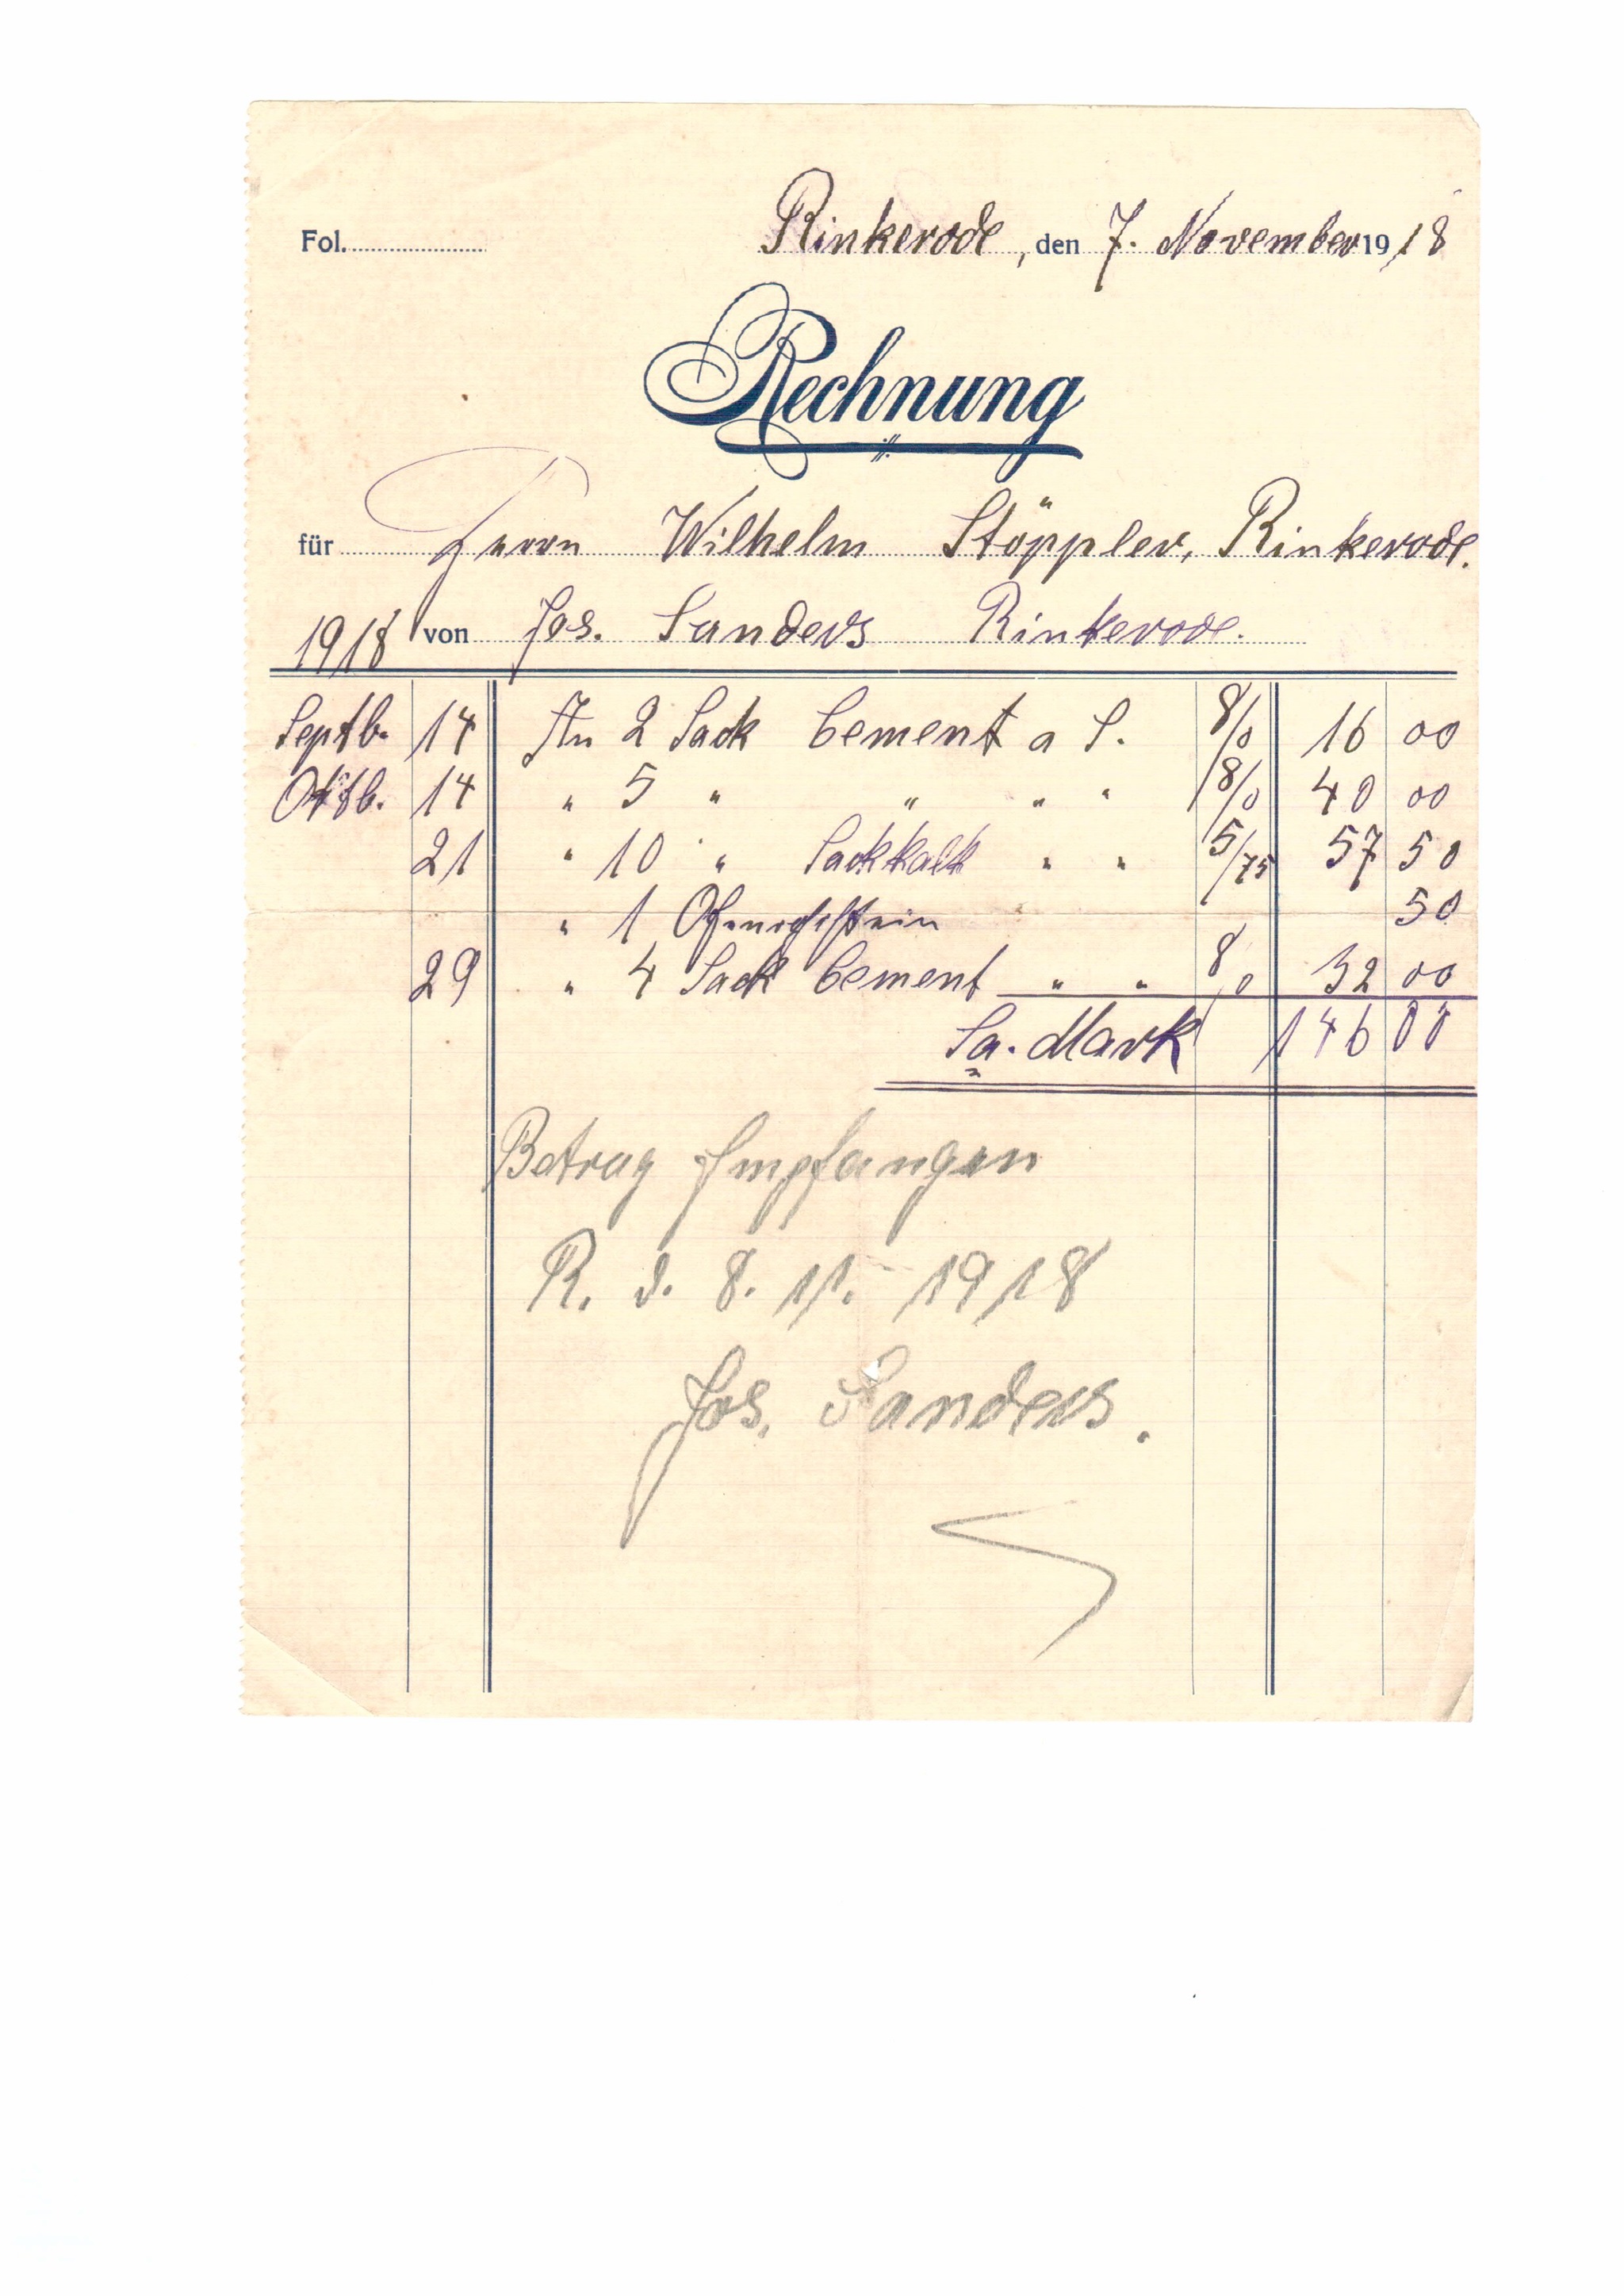 Fol. Rinkerode, den 7. November 1918
Rechnung
für Herrn Wilhelm Stöppler, Rinkerode.
1918 von Jos. Sanders Rinkerode.
Septb. 14 An 2 Sack Cement a S. 8/0 16 00
Oktb. 14 " 5 " " " " 8/0 40 00
21 " 10 " Sackkalk " " 5/75 57 50
" 1 50
29 " 4 Sack Cement " " 8,0 32 00
Sa. Mark 146 00
Betrag Empfangen
R. d. 8. 11. 1918
Jos. Sanders.